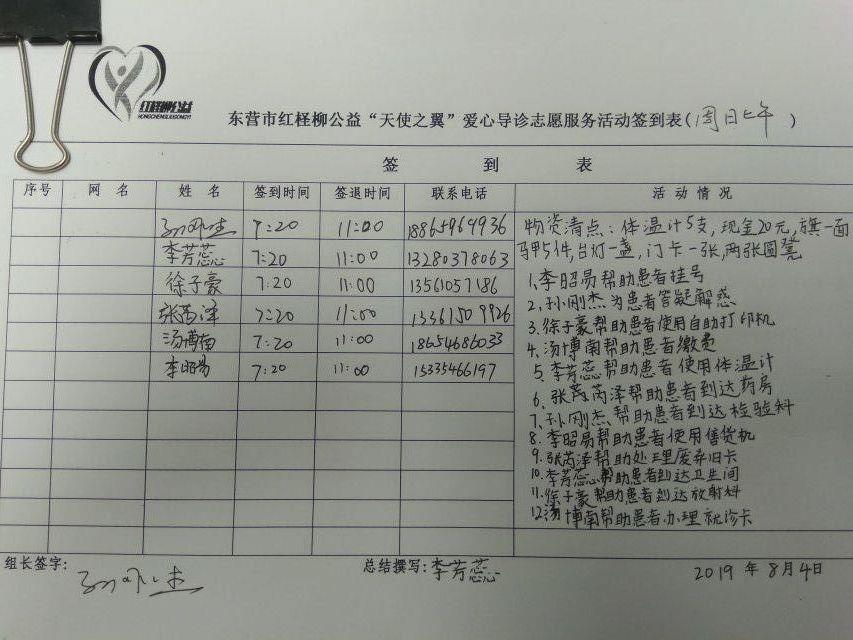 红柽柳公益
HONGCHENGLIUGONGYI
东营市红柽柳公益“天使之翼”爱心导诊志愿服务活动签到表(周日上午)
签 到 表
序号 网 名 姓 名 签到时间 签退时间 联系电话 活 动 情 况
孙刚杰 7:20 11:00 18865969936
李芳蕊 7:20 11:00 13280378063
徐子豪 7:20 11:00 13561057186
张芮泽 7:20 11:00 13361509926
汤博南 7:20 11:00 18654686033
李昭易 7:20 11:00 15335466197
物资清点:体温计5支,现金20元,旗一面
马甲5件,台灯一盏,门卡一张,两张圆凳
1.李昭易帮助患者挂号
2.孙刚杰为患者答疑解惑
3.徐子豪帮助患者使用自助打印机
4.汤博南帮助患者缴费
5.李芳蕊帮助患者使用体温计
6.张芮芮泽帮助患者到达药房
7.孙刚杰帮助患者到达检验科
8.李昭易帮助患者使用售货机
9.张芮泽帮助处理废弃旧卡
10.李芳蕊帮助患者到达卫生间
11.徐子豪帮助患者到达放射科
12.汤博南帮助患者办理就诊卡
组长签字:孙刚杰
总结撰写:李芳蕊
2019年8月4日